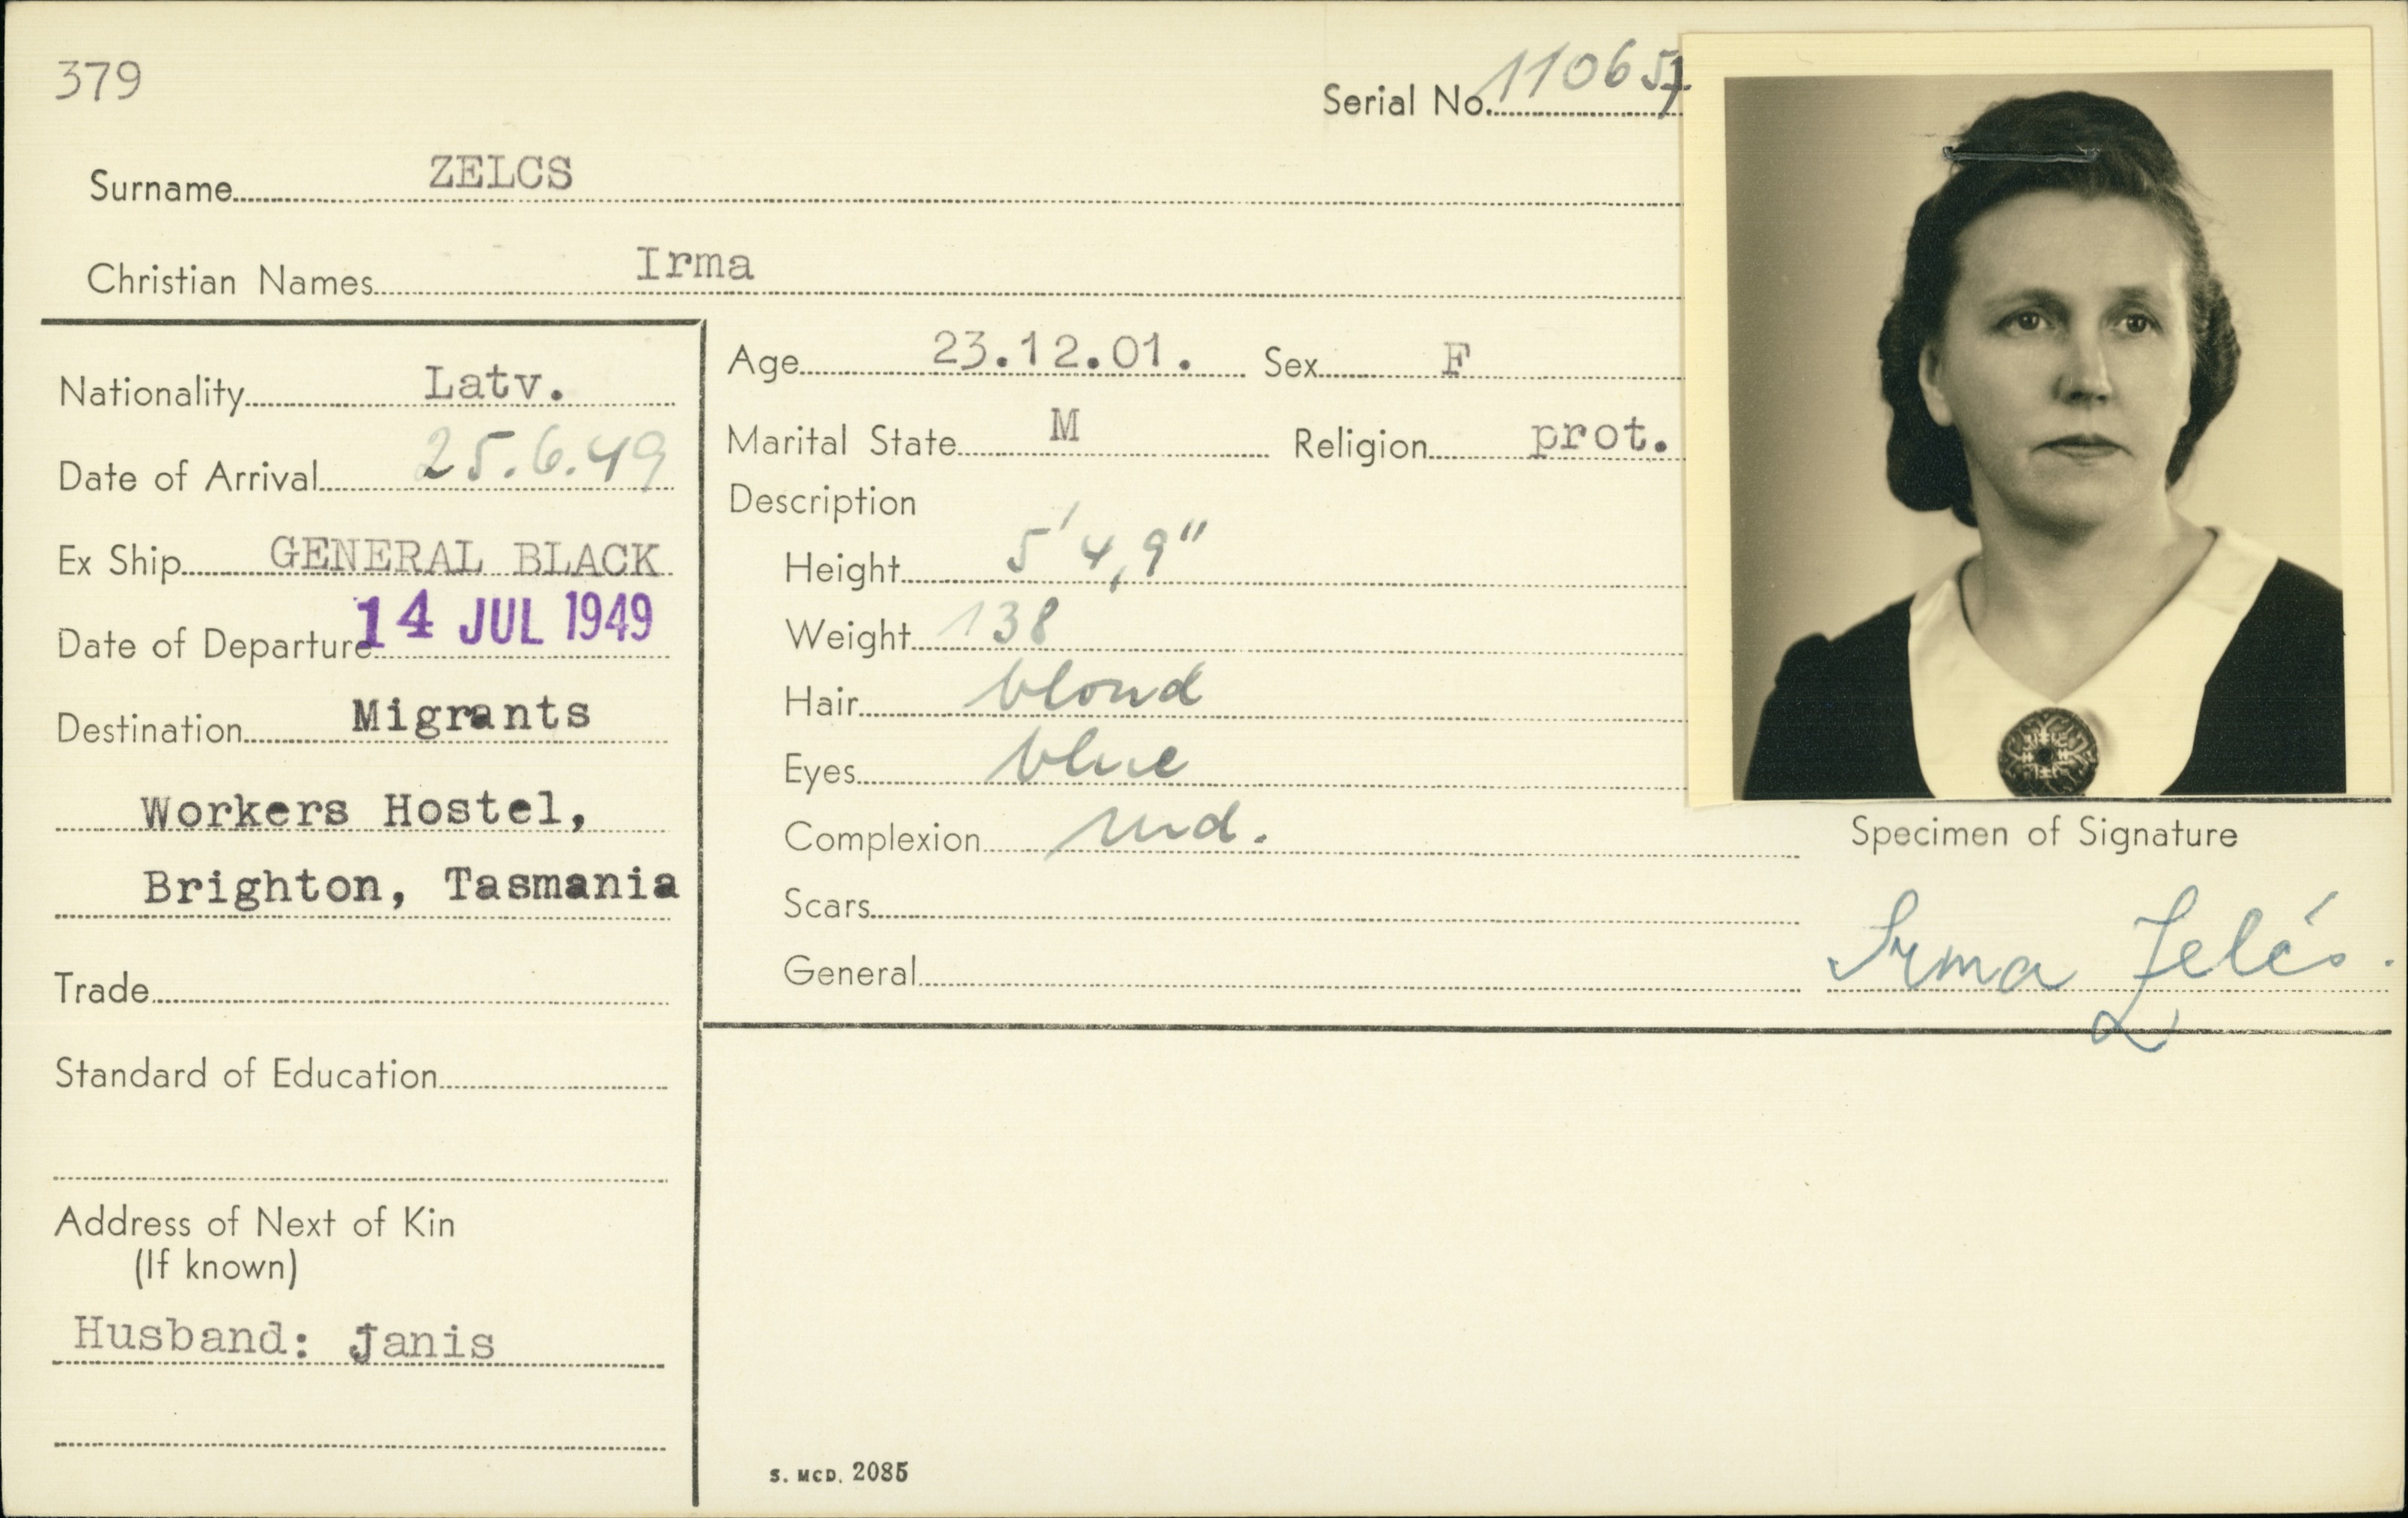 379
Serial No. 11065
Surname ZELCS
Christian Names Irma
Nationality Latv.
Date of Arrival 25.6.49
Ex Ship GENERAL BLACK
Date of Departure 14 JUL 1949
Destination Migrants
Workers Hostel,
Brighton, Tasmania
Trade
Standard of Education
Address of Next of Kin
(If known)
Husband: Janis
Age 23.12.01. Sex F
Marital State M Religion prot.
Description
Height 5' 4,9"
Weight 138
Hair blond
Eyes blue
Complexion md.
Scars
General
Specimen of Signature
Irma Zelcs.
S. McD. 2085